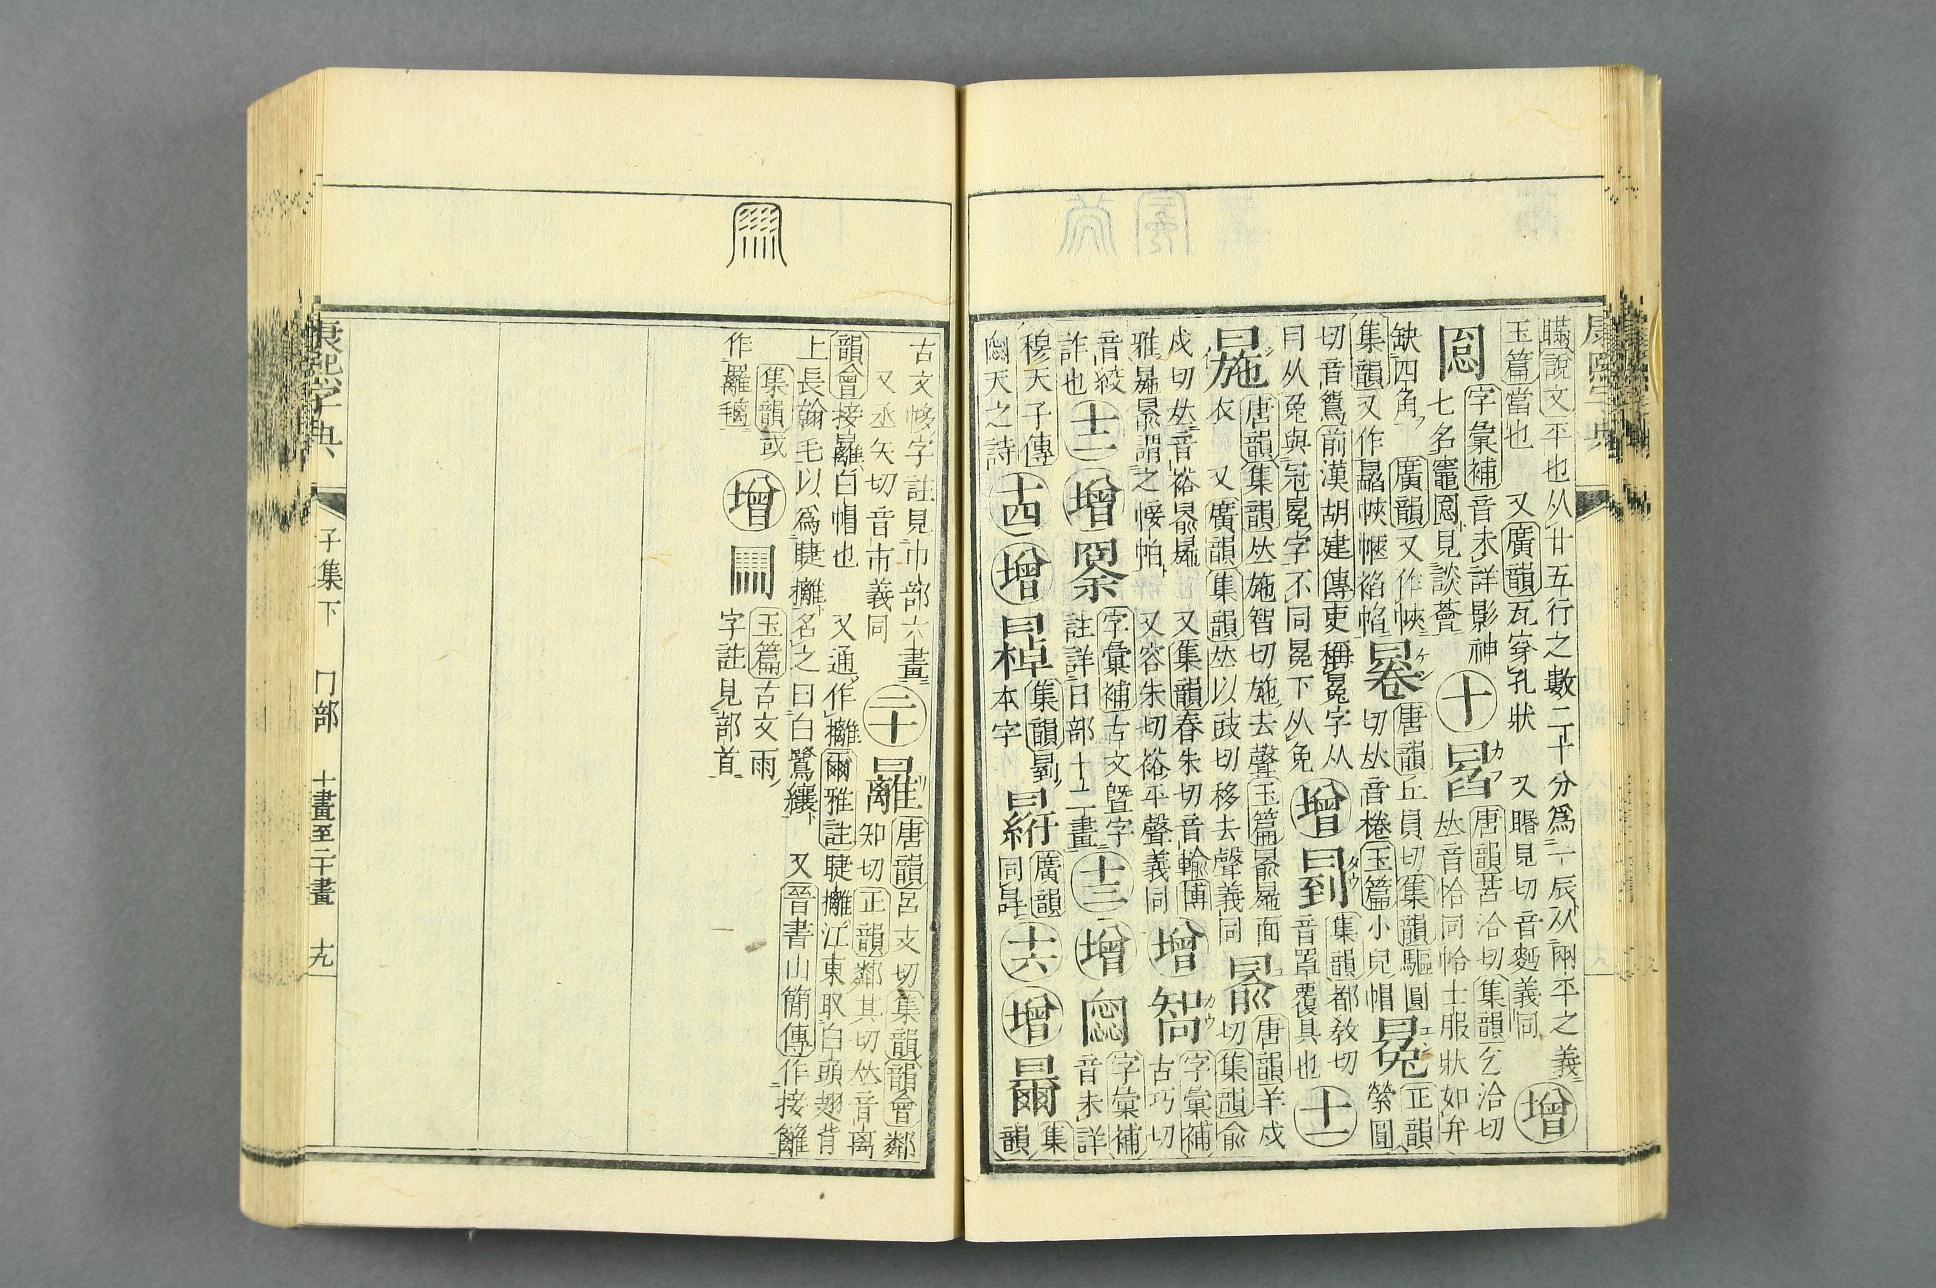 㒼說文平也从廿五行之數二十分爲一辰从㒳平之義
玉篇當也 又廣韻瓦穿孔狀 又睧見切音麪義同 增
字彙補音未詳影神
七名竈 見談薈 十
唐韻苦洽切集韻乞洽切
𠀤音恰同帢士服狀如弁
缺四角 廣韻又作㡊
集韻又作
唐韻丘員切集韻驅圓
切𠀤音棬玉篇小兒帽
正韻縈圓
切音鴛前漢胡建傳吏稱冤字从
冃从兔與冠冕字不同冕下从免
增 集韻都敎切
音罩覆具也 十一
唐韻集韻𠀤施智切施去聲玉篇 面
衣 又廣韻集韻𠀤以豉切移去聲義同
唐韻羊戍
切集韻俞
戍切𠀤音裕 又集韻春朱切音輸博
雅 謂之帹帕 又容朱切裕平聲義同
增 字彙補
古巧切
音絞
詐也 十二 增
字彙補古文曁字
註詳日部十二畫 十三 增
字彙補
音未詳
穆天子傳
天之詩 十四 增
集韻
本字
廣韻
同 十六 增
集
韻
古文 字註見巾部六畫 二十
唐韻呂支切集韻韻會鄰
又丞矢切音市義同
知切正韻鄰其切𠀤音离
韻會接䍦白帽也 又通作攡爾雅註睫攡江東取白頭翅背
上長翰毛以爲睫攡名之曰白鷺縗 又晉書山簡傳作接籬
集韻或
作
增
玉篇古文雨
字註見部首
康熙字典
子集下 冂部 十畫至二十畫 十九